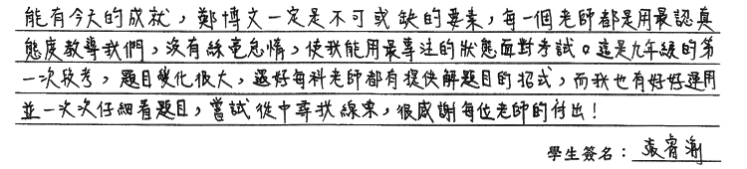 能有今天的成就，鄭博文一定是不可或缺的要素，每一個老師都是用最認真
態度教導我們，沒有絲毫怠惰，使我能用最專注的狀態面對考試。這是九年級的第
一次段考，題目變化很大，還好每科老師都有提供解題目的招式，而我也有好好運用
並一次次仔細看題目，嘗試從中尋找線索，很感謝每位老師的付出！
學生簽名：